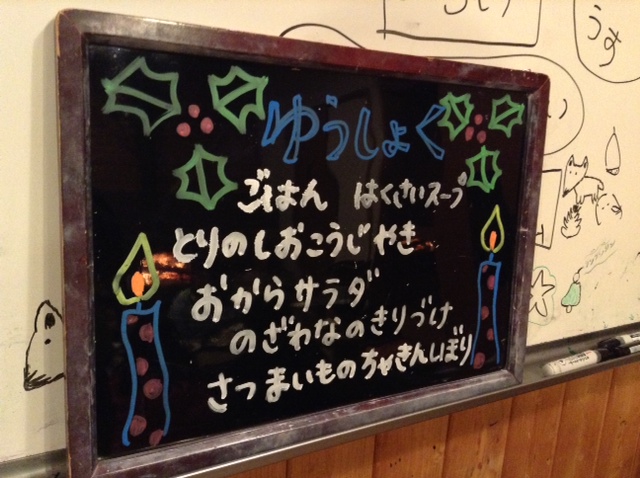 ゆうしょく
ごはん はくさいスープ
とりのしおこうじやき
おからサラダ
のざわなのきりづけ
さつまいものちゃきんしぼり